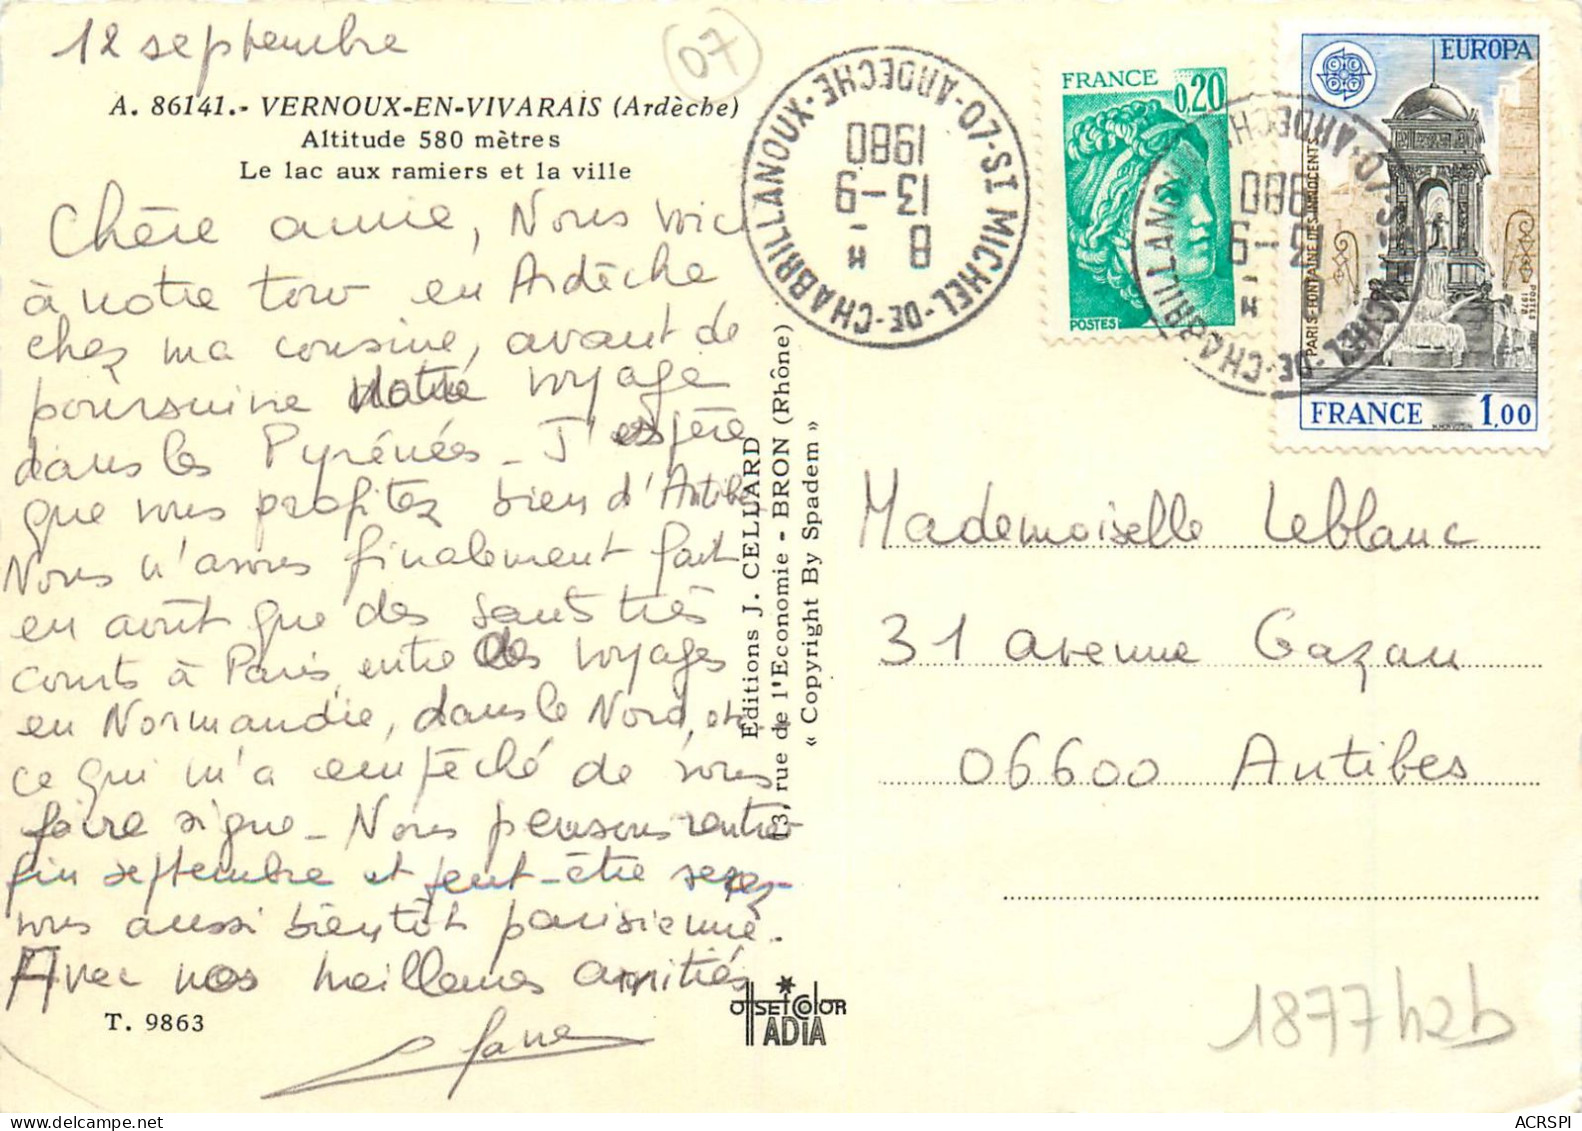 12 septembre
07
A. 86141.- VERNOUX-EN-VIVARAIS (Ardèche)
Altitude 580 mètres
Le lac aux ramiers et la ville
Chère amie, Nous voici
à notre tour en Ardèche
chez ma cousine, avant de
poursuivre notre voyage
dans les Pyrénées - J'espère
que vous profitez bien d'Antibes
Nous n'avons finalement fait
en août que des sauts très
courts à Paris, entre des voyages
en Normandie, dans le Nord, etc
ce qui m'a empêché de vous
faire signe - Nous pensons rentrer
fin septembre et peut-être serez-
vous aussi bientôt parisienne.
Avec nos meilleures amitiés
T. 9863
Editions J. CELLARD
13, rue de l'Economie - BRON (Rhône)
« Copyright By Spadem »
OffsetColor
IADIA
07-ST MICHEL-DE-CHABRILLANOUX-ARDECHE
8 H
13-9
1980
FRANCE
0,20
POSTES
EUROPA
CEPT
PARIS-FONTAINE DES INNOCENTS
POSTES 1978
FRANCE 1,00
Mademoiselle Leblanc
31 avenue Gazan
06600 Antibes
1877h2b
ACRSPI